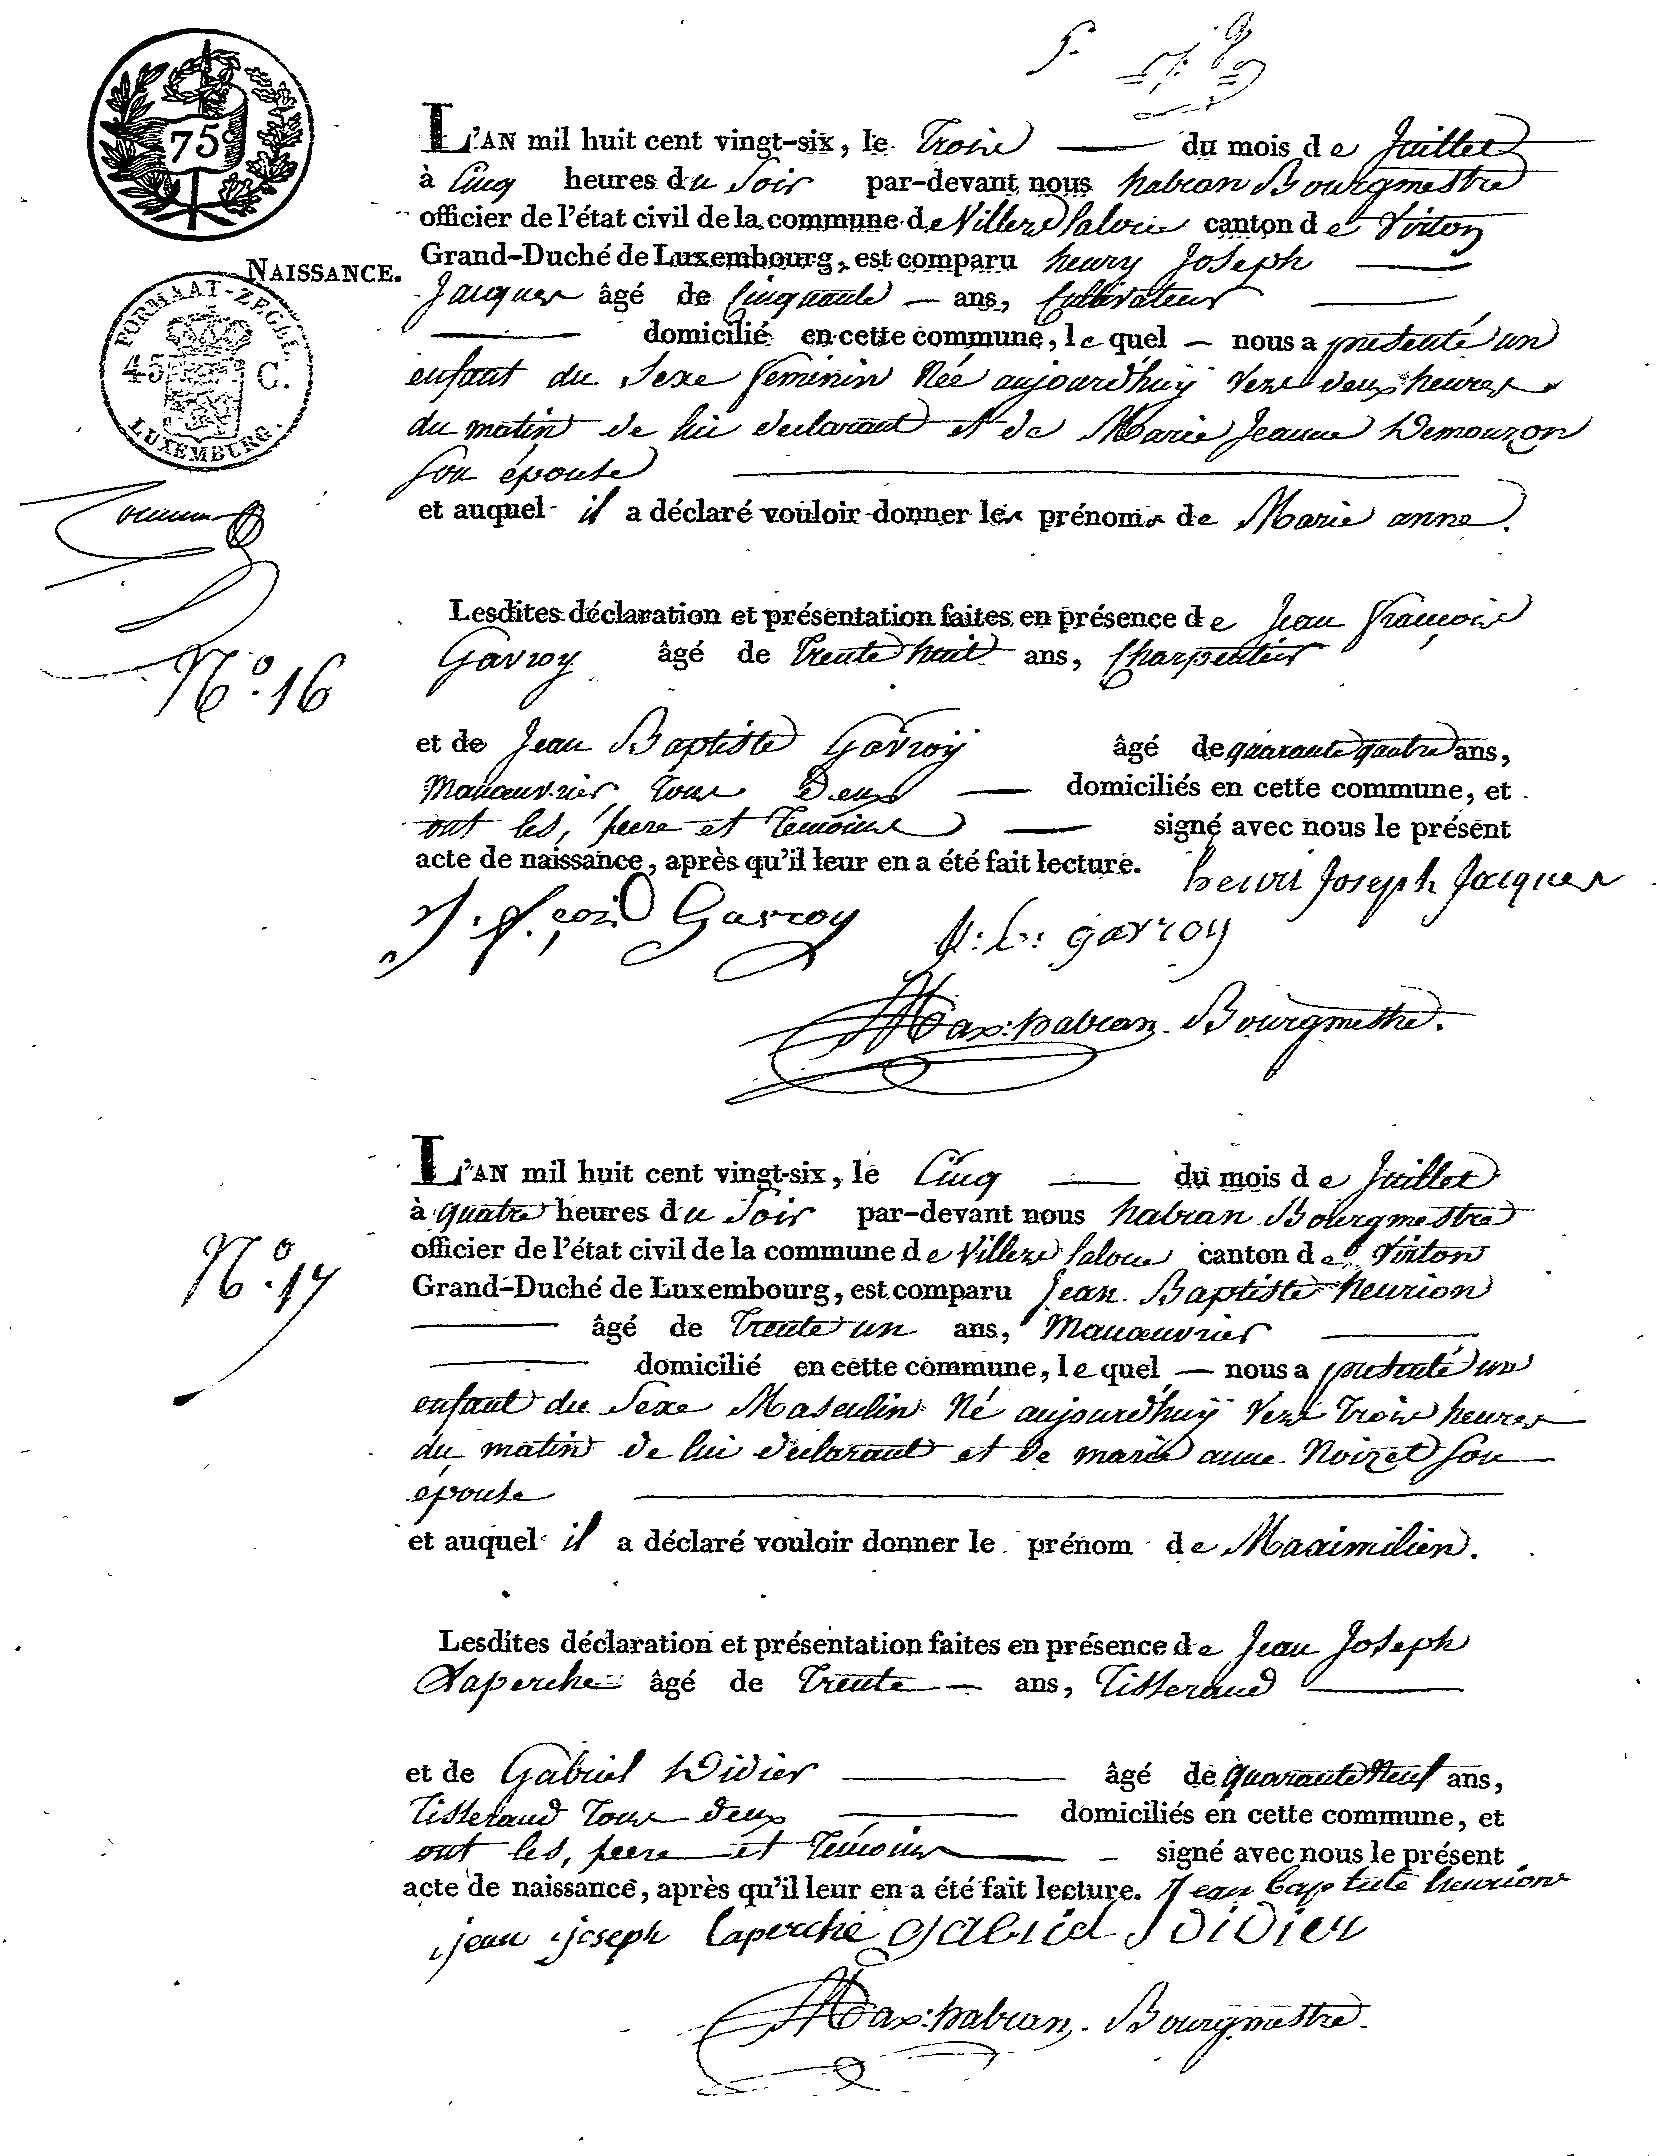 75c
L'AN mil huit cent vingt-six, le Trois du mois de Juillet
à Cinq heures du Soir par-devant nous habran Bourgmestre
officier de l'état civil de la commune de Villers Laloue canton de Virton
NAISSANCE.
Grand-Duché de Luxembourg, est comparu henry Joseph
Jacques âgé de Cinquante ans, Cultivateur
FORMAAT-ZEGEL.
45 C.
LUXEMBURG.
domicilié en cette commune, lequel nous a presenté un
enfant du Sexe feminin Née aujourd'huÿ vers deux heures
du matin de lui declarant et de Marie Jeanne Demouzon
son épouse
et auquel il a déclaré vouloir donner les prénoms de Marie anne.
Lesdites déclaration et présentation faites en présence de Jean François
Gavroy âgé de Trente huit ans, Charpentier
No. 16
et de Jean Baptiste Gavroÿ âgé de quarante quatre ans,
Manœuvrier Tous Deux domiciliés en cette commune, et
ont les, peere et Temoins signé avec nous le présent
acte de naissance, après qu'il leur en a été fait lecture. henri Joseph Jacques
J. f. çois Gavroy j: b: gavroy
Max: habran. Bourgmestre.
L'AN mil huit cent vingt-six, le Cinq du mois de Juillet
à quatre heures du Soir par-devant nous habran Bourgmestre
No. 17
officier de l'état civil de la commune de Villers Laloue canton de Virton
Grand-Duché de Luxembourg, est comparu Jean Baptiste henrion
âgé de Trente un ans, Manœuvrier
domicilié en cette commune, lequel nous a presenté un
enfant du Sexe Masculin Né aujourd'huÿ vers Trois heures
du matin de lui declarant et de marie anne Noizet son
épouse
et auquel il a déclaré vouloir donner le prénom de Maximilien.
Lesdites déclaration et présentation faites en présence de Jean Joseph
Laperche âgé de Trente ans, Tisserand
et de Gabriel Didier âgé de quarante Neuf ans,
Tisserand Tous deux domiciliés en cette commune, et
ont les, peere et Témoins signé avec nous le présent
acte de naissance, après qu'il leur en a été fait lecture. Jean baptiste henrion
jean joseph laperche gabriel Didier
Max: habran. Bourgmestre.